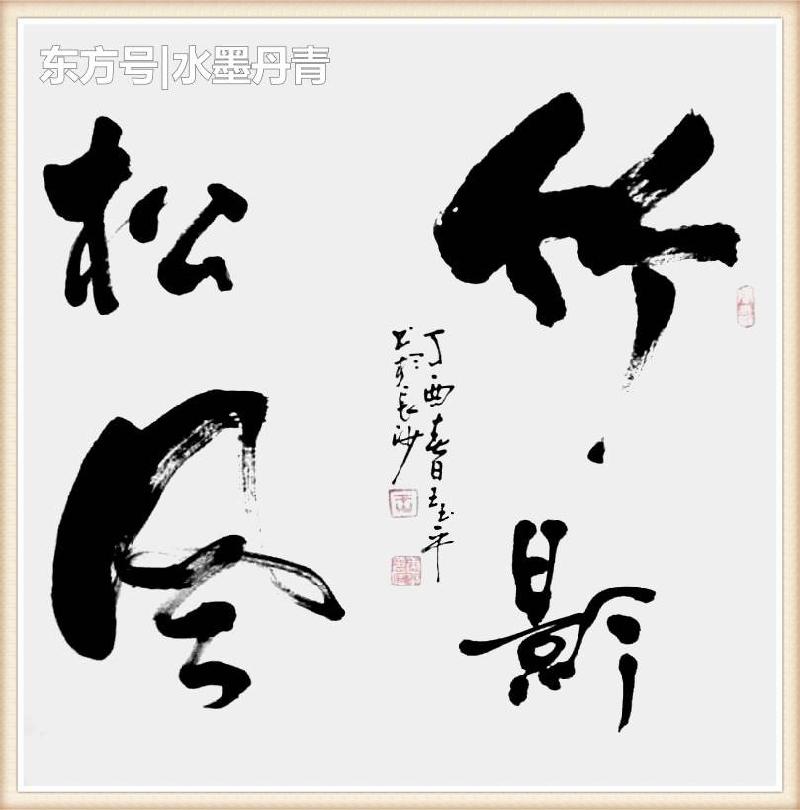 东方号|水墨丹青
竹影
松风
丁酉春日王玉平
书于长沙